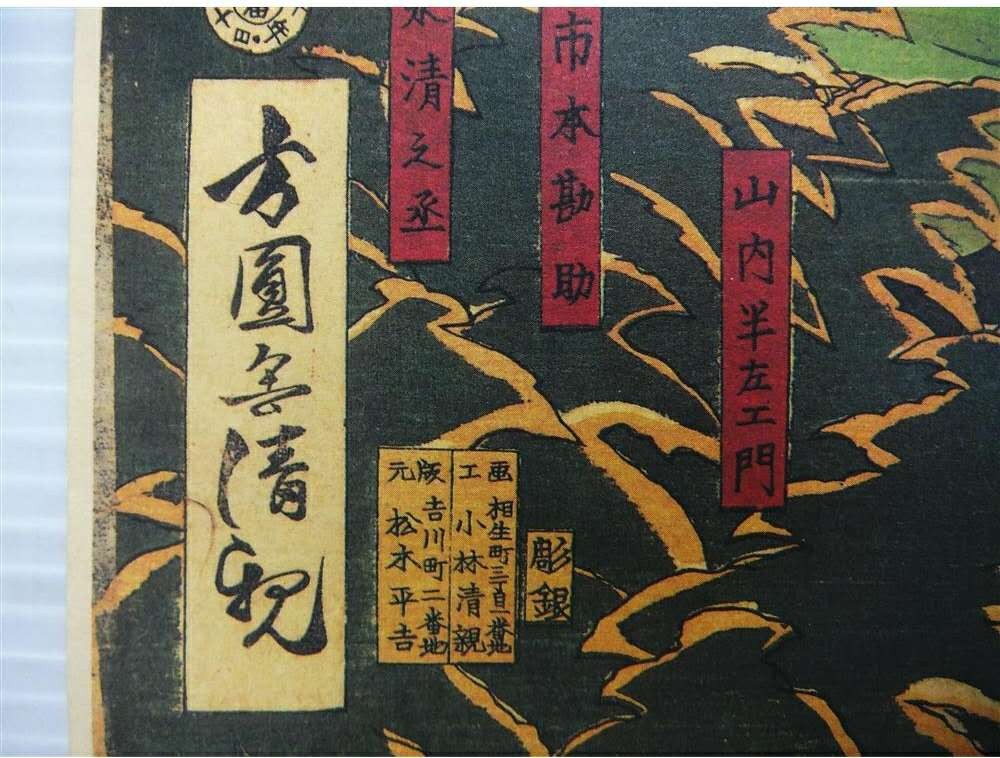 山内半左エ門
市本勘助
清之丞
彫銀
画工
相生町三丁目一番地
小林清親
版元
吉川町二番地
松木平吉
方圓舎清親